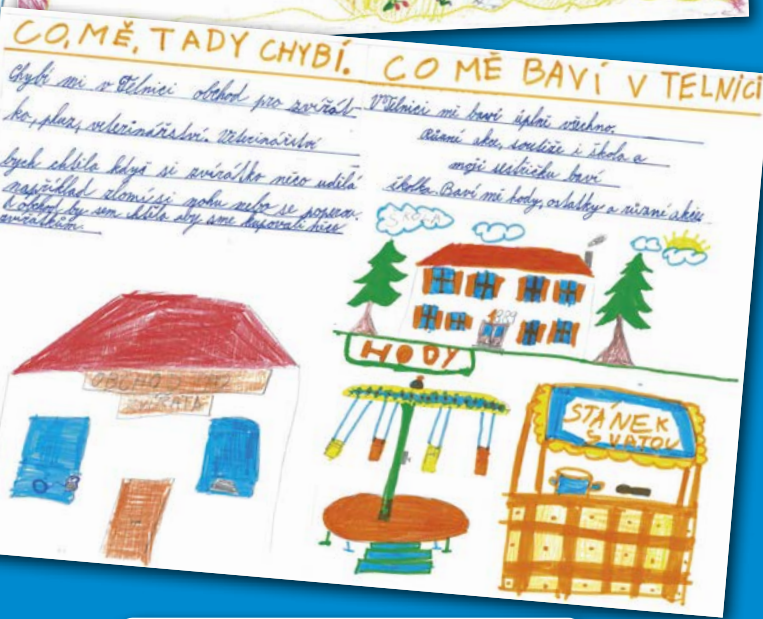 CO, MĚ, TADY CHYBÍ.
Chybí mi v Telnici obchod pro zvířát-
ko, plaz, veterinářství. Veterinářství
bych chtěla když si zvířátko něco udělá
například zlomí si nohu nebo se popere.
A obchod by sem chtěla aby sme kupovali
zvířátkům.
OBCHOD
ZVÍŘATA
CO MĚ BAVÍ V TELNICI
V Telnici mě baví úplně všechno.
Různé akce, soutěže i škola a
moji sestřičku baví
školka. Baví mě hody, ostatky a různé akce
ŠKOLA
HODY
STÁNEK
S VATOU